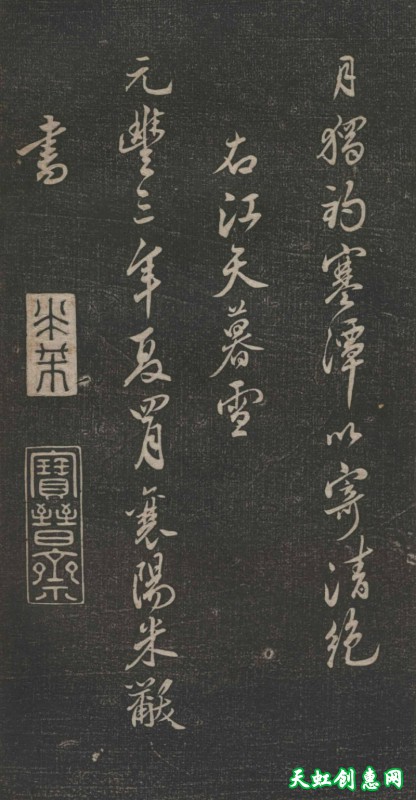 月獨釣寒潭以寄清絕
右江天暮雪
元豐三年夏四月襄陽米黻
書
米芾
寶晉齋
天虹创惠网